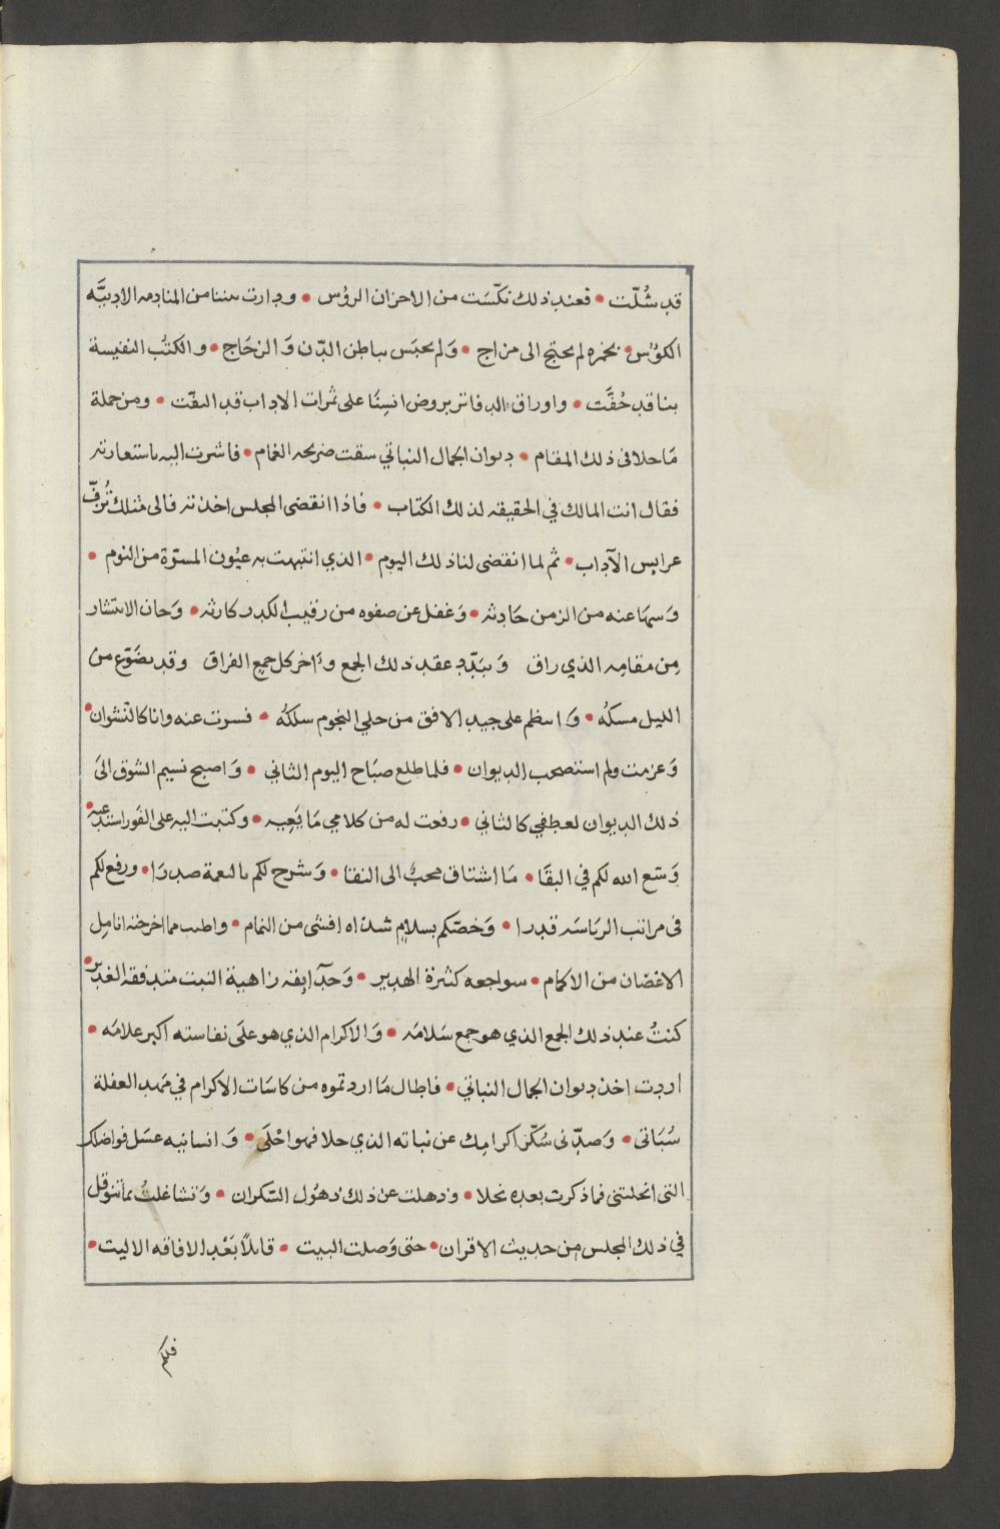 قد شُلّت • فعند ذلك نكّسَت من الاحزان الروُس • ودارت بيننا من المنادمه الادبيَّه
الكوُس • بخمرة لم يحتج الى مزاج • وَلم يحبَس بباطن الدّن وَالزجَاج • والكتُب النفيسة
بنا قد حُفَّت • واوراق الدفاتر بروض انسِنَا على ثمرات الاداب قد التفّت • ومن جملة
مَا حلا فى ذلك المقام • ديوان الجمال النباتي سقت ضريحه الغمام • فاشرت اليه باستعارته
فقال انت المالك في الحقيقه لذلك الكتاب • فاذا انقضى المجلس اخذته فالى مثلك تُزفّ
عرايس الآداب • ثم لما انقضى لنا ذلك اليوم • الذي انتبهت به عيُون المسرّة من النوم •
وَسهَا عنه من الزمن حَادثه • وَغفل عن صفوه من رقيب الكدر كارثه • وَحان الانتشار
مِن مقامِه الذي راق وَتبَدّد عقد ذلك الجمع وءَاخر كل جمع الفراق وقد تضَوّع من
الليل مسكُه • وَانتظم على جيد الافق من حلي النجوم سلكُه • فسرت عنه وانا كالنّشوان •
وَعزمت ولم استصحب الديوان • فلما طلع صبَاح اليوم الثاني • وَاصبح نسيم الشوق الىَ
ذلك الديوان لعطفي كالثاني • رفعت له من كلامي مَا يَعِيه • وكتبت اليه على الفَور استدعيه •
وَسّع الله لكم في البقَا • مَا اشتاق محبُّ الى النقا • وَشرح لكم بالنعمة صدرَا • ورفع لكم
فى مراتب الريَاسَه قدرا • وَخصّكم بسلامٍ شذاه افشى من النمام • واطيب مما اخرجته انامِل
الاغصَان من الاكمام • سواجعه كثيرة الهدير • وَحدَآيقه زاهية النبت متدفقة الغدير •
كنتُ عند ذلك الجمع الذي هو جمع سَلامَه • وَالاكرام الذي هو علىَ نفاسته اكبر علامَه •
اردت اخذ ديوان الجمال النباتي • فاطال مَا اردتموه من كاسَات الاكرام في مَهد الغفلة
سُبَاتى • وَصدّنى سُكّر اكرامِك عن نباته الذي حلا فهو احْلَى • وَانسانيه عسَل فواضلك
التى انحلتنى فما ذكرت بعده نحلا • وذهلت عن ذلك ذهُول السّكران • وَتشاغلتُ بما تنوقل
في ذلك المجلس مِن حديث الاقران • حتى وَصلت البيت • قايلاً بَعْد الافاقه الاليت •
فلكم